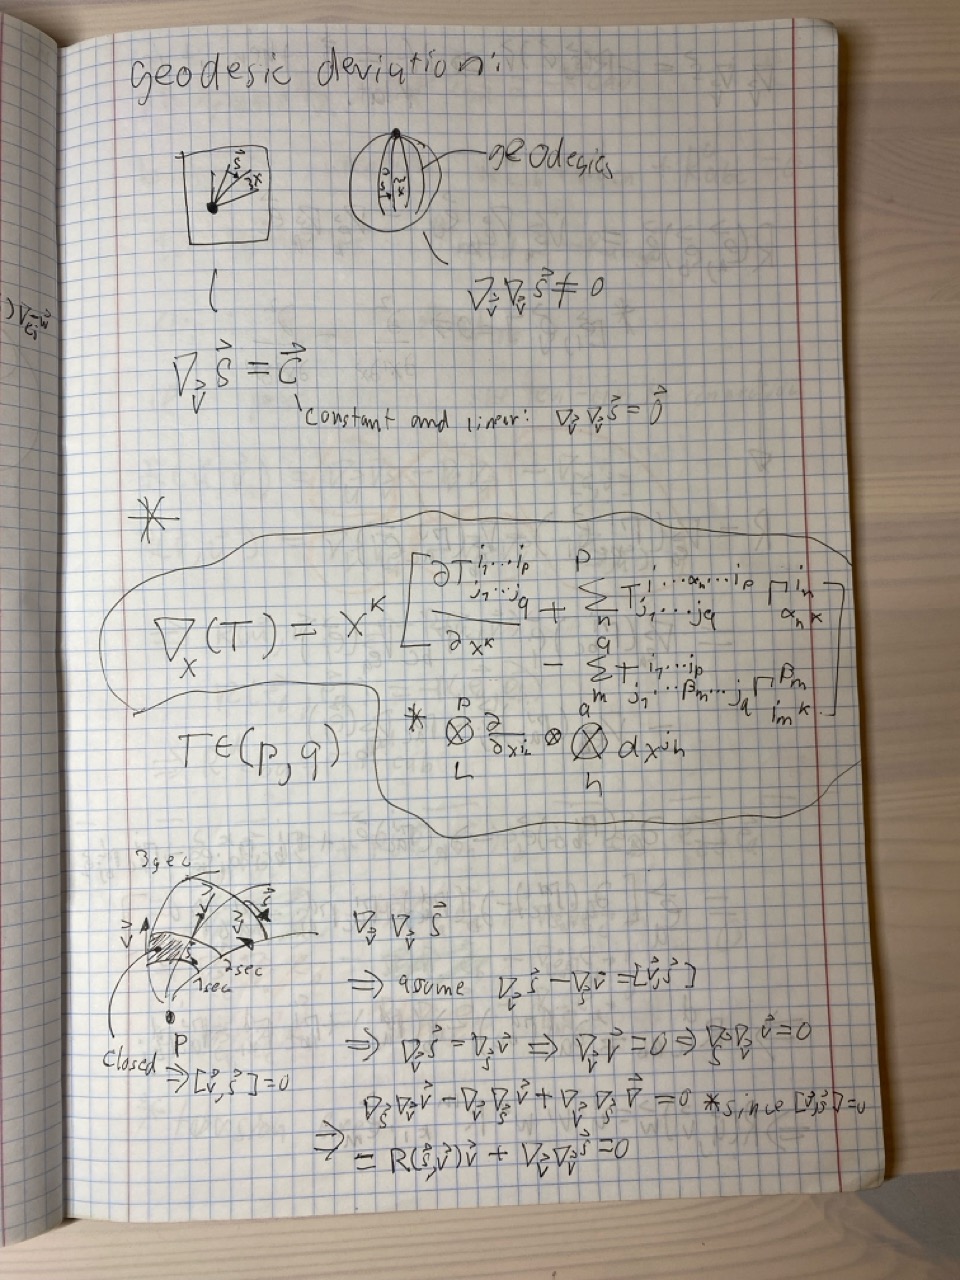 geodesic deviation:
S⃗
x
geodesics
S
x
∇_v⃗ ∇_v⃗ S⃗ ≠ 0
)∇_e⃗ᵢ w⃗
∇_v⃗ S⃗ = C⃗
constant and linear: ∇_v⃗ ∇_v⃗ S⃗ = 0⃗
*
∇_X (T) = X^K [ ∂T^{i₁...i_p}_{j₁...j_q} / ∂x^K + Σ_n^p T^{i...α_n...i_p}_{j₁...j_q} Γ^{i_n}_{α_n K}
− Σ_m^q T^{i₁...i_p}_{j₁...β_m...j_q} Γ^{β_m}_{j_m K} ]
* ⊗_L^p ∂/∂x^{i_L} ⊗ ⊗_h^q dx^{j_h}
T ∈ (p, q)
3sec
v⃗
v⃗
v⃗
S⃗
S
2sec
1sec
P
closed
⇒ [v⃗, S⃗] = 0
∇_v⃗ ∇_v⃗ S⃗
⇒ assume ∇_v⃗ S⃗ − ∇_S⃗ v⃗ = [v⃗, S⃗]
⇒ ∇_v⃗ S⃗ = ∇_S⃗ v⃗ ⇒ ∇_v⃗ v⃗ = 0 ⇒ ∇_S⃗ ∇_v⃗ v⃗ = 0
∇_S⃗ ∇_v⃗ v⃗ − ∇_v⃗ ∇_S⃗ v⃗ + ∇_v⃗ ∇_S⃗ v⃗ = 0 * since [v⃗, S⃗] = 0
⇒ = R(S⃗, v⃗) v⃗ + ∇_v⃗ ∇_v⃗ S⃗ = 0